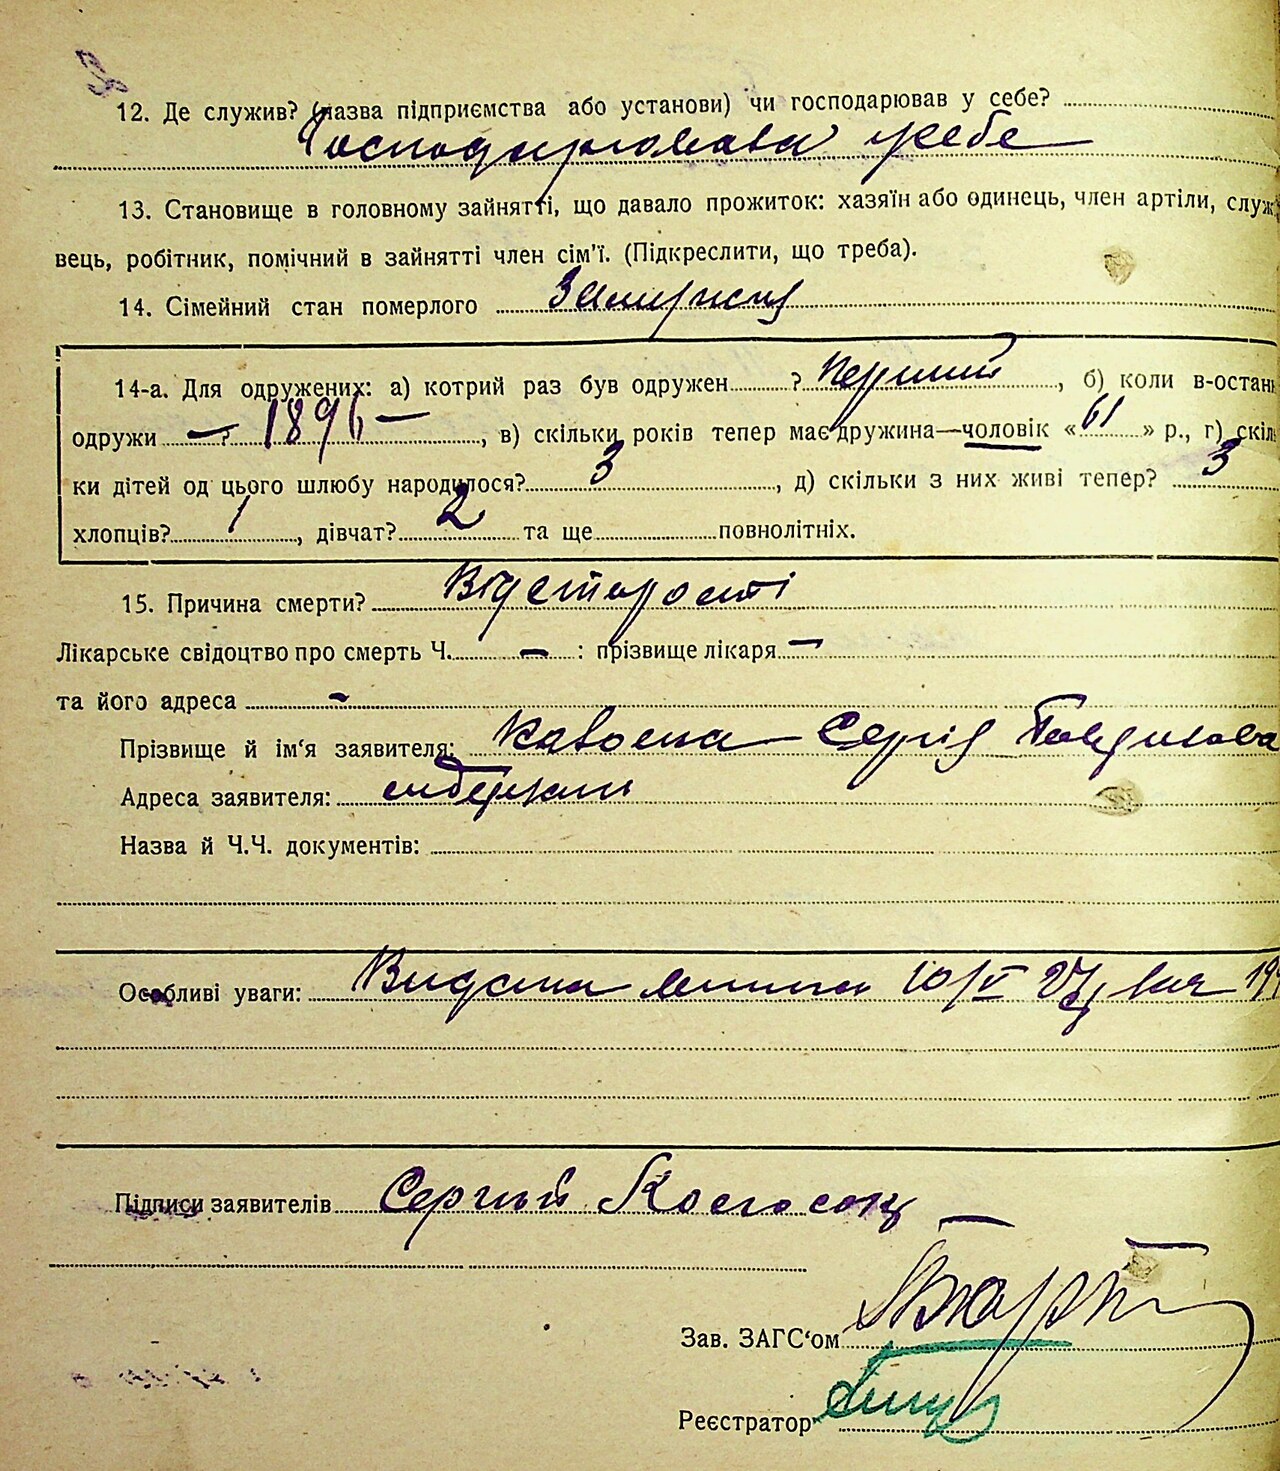 12. Де служив? (назва підприємства або установи) чи господарював у себе?
Господарювала у себе
13. Становище в головному зайнятті, що давало прожиток: хазяїн або одинець, член артіли, служ
вець, робітник, помічний в зайнятті член сім'ї. (Підкреслити, що треба).
14. Сімейний стан померлого
14-а. Для одружених: а) котрий раз був одружен ? Перший, б) коли в-остан
одружи — ? 1896 —, в) скільки років тепер має дружина—чоловік « 61 » р., г) скіль
ки дітей од цього шлюбу народилося? 3, д) скільки з них живі тепер? 3
хлопців? 1, дівчат? 2 та ще повнолітніх.
15. Причина смерти? Від старості
Лікарське свідоцтво про смерть Ч. — : прізвище лікаря —
та його адреса -
Прізвище й ім'я заявителя: Сергій
Адреса заявителя:
Назва й Ч.Ч. документів:
Особливі уваги: Видана 10/V
Підписи заявителів Сергий
Зав. ЗАГС'ом
Реєстратор